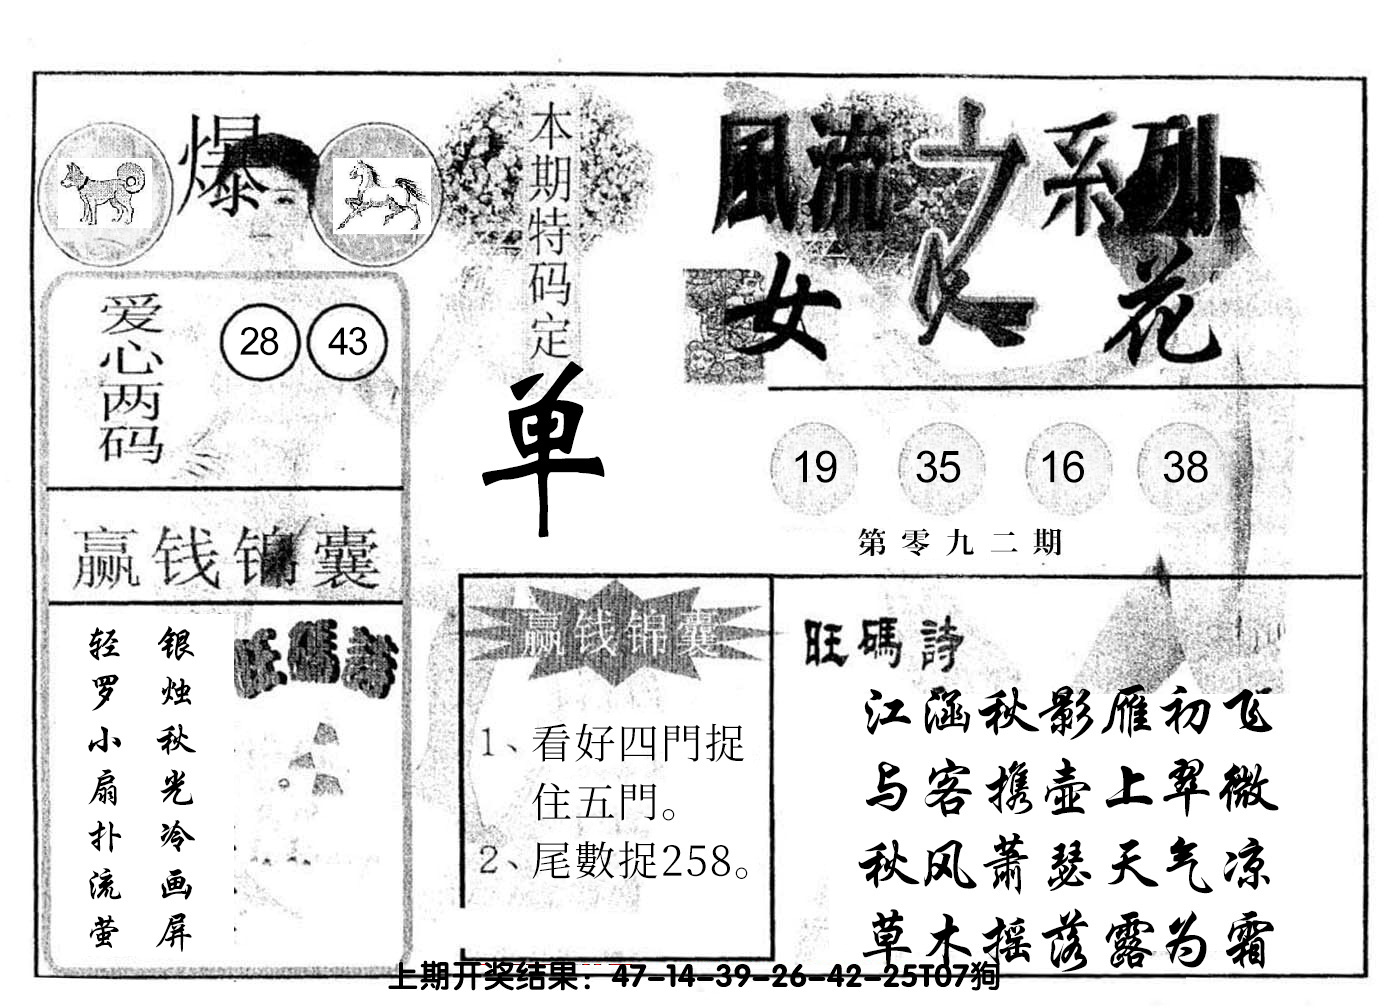 爆
本期特码定
单
風流之系列
女人花
爱心两码
28 43
19 35 16 38
第零九二期
赢钱锦囊
银烛秋光冷画屏
轻罗小扇扑流萤
旺碼詩
赢钱锦囊
1、看好四門捉
住五門。
2、尾數捉258。
旺碼詩
江涵秋影雁初飞
与客携壶上翠微
秋风萧瑟天气凉
草木摇落露为霜
上期开奖结果：47-14-39-26-42-25T07狗